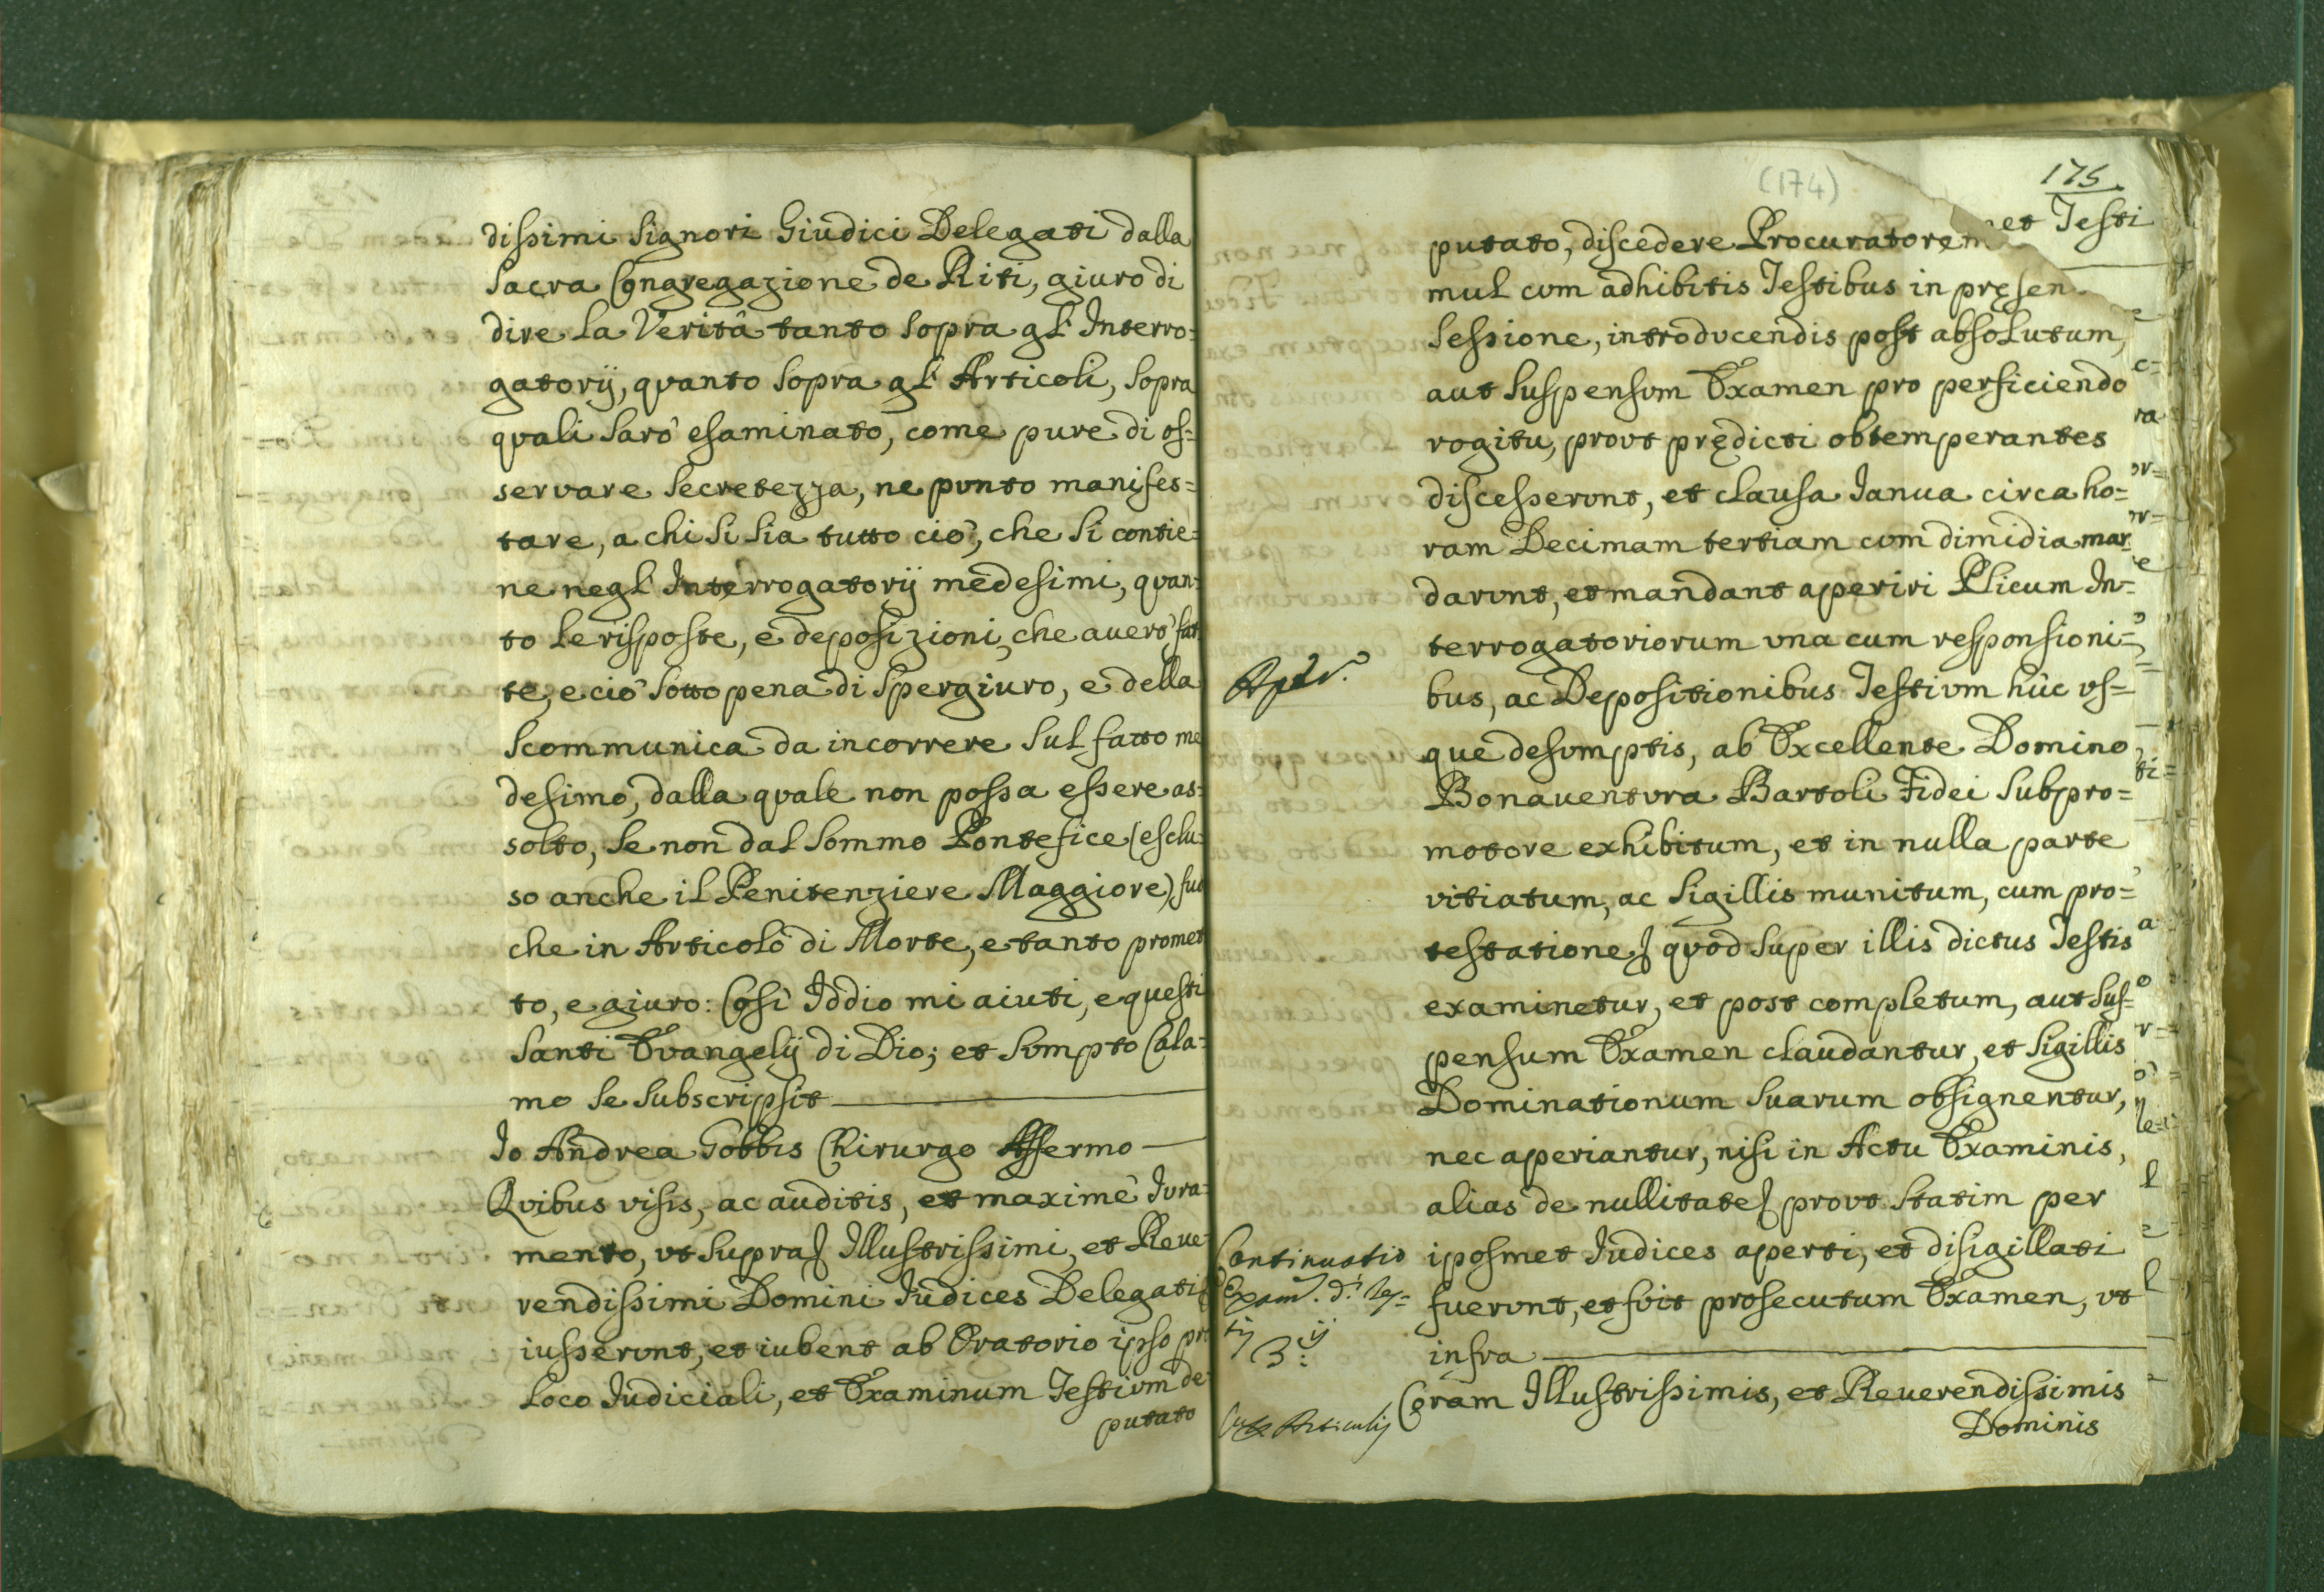 dissimi Signori Giudici Delegati dalla
Sacra Congregazione de Riti, giuro di
dire la Verità tanto sopra gl' Interro-
gatorij, quanto sopra gl' Articoli, sopra
quali sarò esaminato, come pure di os=
servare secretezza, ne punto manifes=
tare, a chi si sia tutto ciò, che si contie=
ne negl' Interrogatorij medesimi, quan-
to le risposte, e deposizioni, che auerò fat
te, e ciò sotto pena di spergiuro, e della
scommunica da incorrere sul fatto me
desimo, dalla quale non possa essere as-
solto, se non dal Sommo Pontefice (esclu-
so anche il Penitenziere Maggiore) fuor
che in Articolo di Morte, e tanto promet
to, e giuro: Così Iddio mi aiuti, e questi
Santi Evangelij di Dio; et sumpto Cala-
mo se subscripsit
Io Andrea Gobbis Chirurgo Affermo
Quibus visis, ac auditis, et maximè Iura-
mento, vt supra Illustrissimi, et Reue-
rendissimi Domini Iudices Delegati
iusserunt, et iubent ab Oratorio ipso pro
Loco Iudiciali, et Examinum Testium de-
putato
(174)
175
putato, discedere Procuratorem
et Testi
mul cum adhibitis Testibus in presen
sessione, introducendis post absolutum,
aut suspensum Examen pro perficiendo
rogitu, prout predicti obtemperantes
discesserunt, et clausa Ianua circa ho=
ram Decimam tertiam cum dimidia man
darunt, et mandant aperiri Plicum In=
terrogatoriorum vna cum responsioni=
bus, ac Depositionibus Testium hùc vs=
que desumptis, ab Excellente Domino
Bonauentura Bartoli Fidei Subpro=
motore exhibitum, et in nulla parte
vitiatum, ac Sigillis munitum, cum pro=
testatione quod super illis dictus Testis
examinetur, et post completum, aut sus=
pensum Examen claudantur, et Sigillis
Dominationum Suarum obsignentur,
nec aperiantur, nisi in Actu Examinis,
alias de nullitate prout statim per
Continuatio
iposmet Iudices aperti, et disigillati
Exam. d.i Tes=
fuerunt, et fuit prosecutum Examen, vt
tis
3: ij
infra
Articulis
Coram Illustrissimis, et Reuerendissimis
Dominis